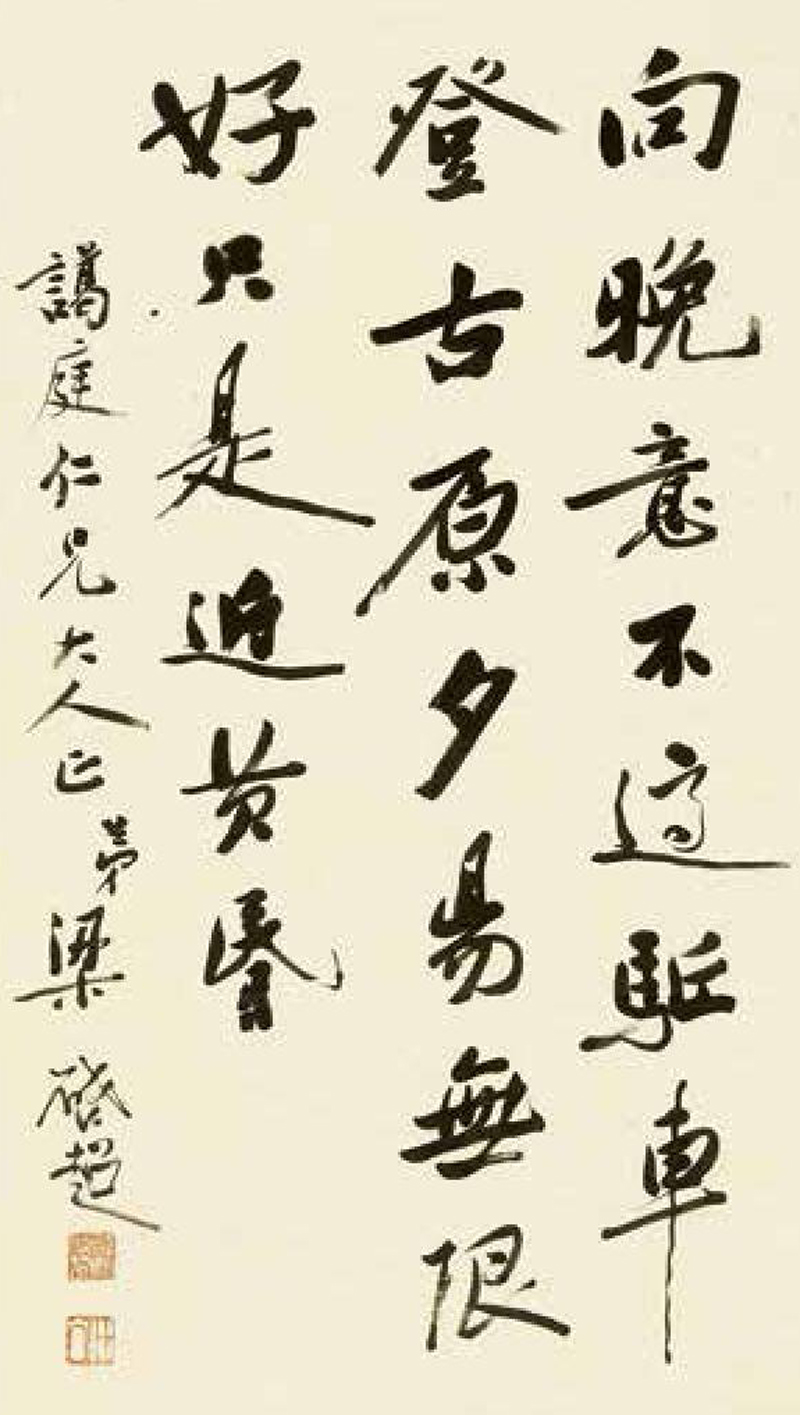 向晚意不適駈車
登古原夕昜無限
好只是近黄昬
譪庭仁兄大人正 弟梁啓超